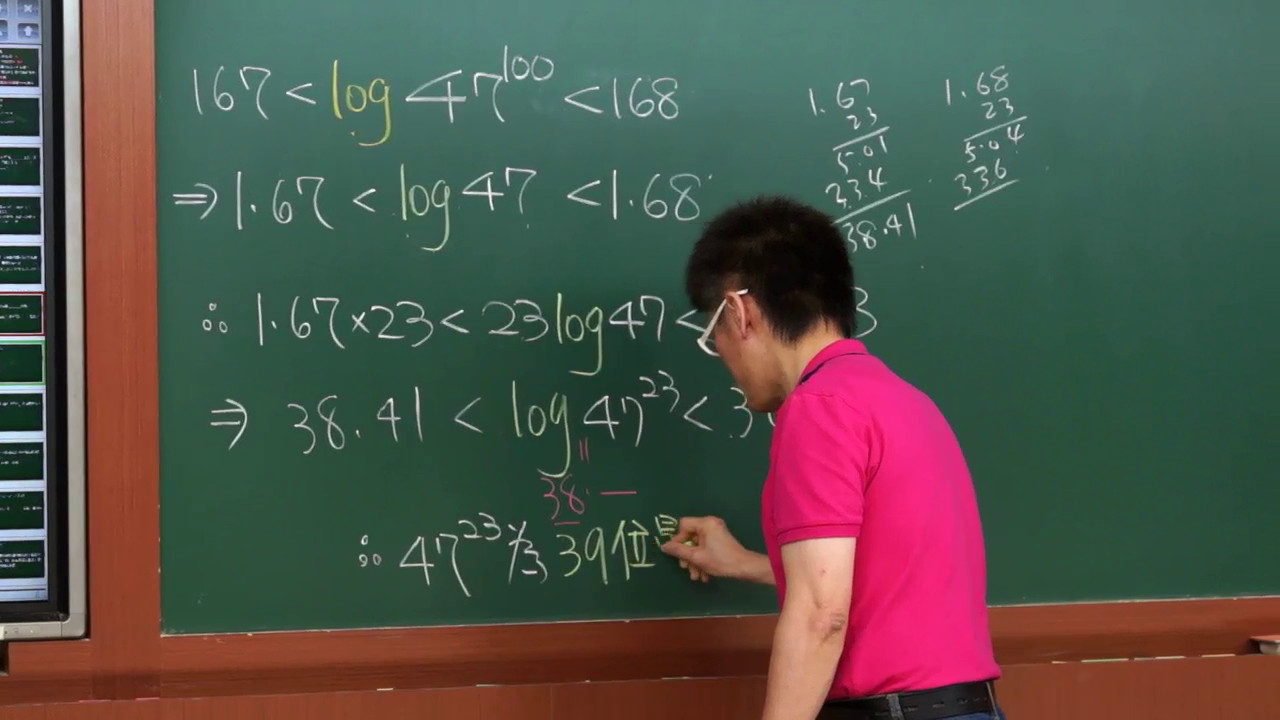 167 < log 47^100 < 168
⇒ 1.67 < log 47 < 1.68
∴ 1.67×23 < 23 log 47 < 3
⇒ 38.41 < log 47^23 < 3
=
38.—
∴ 47^23 為 39 位
1.67
23
5.01
334
38.41
1.68
23
5.04
336